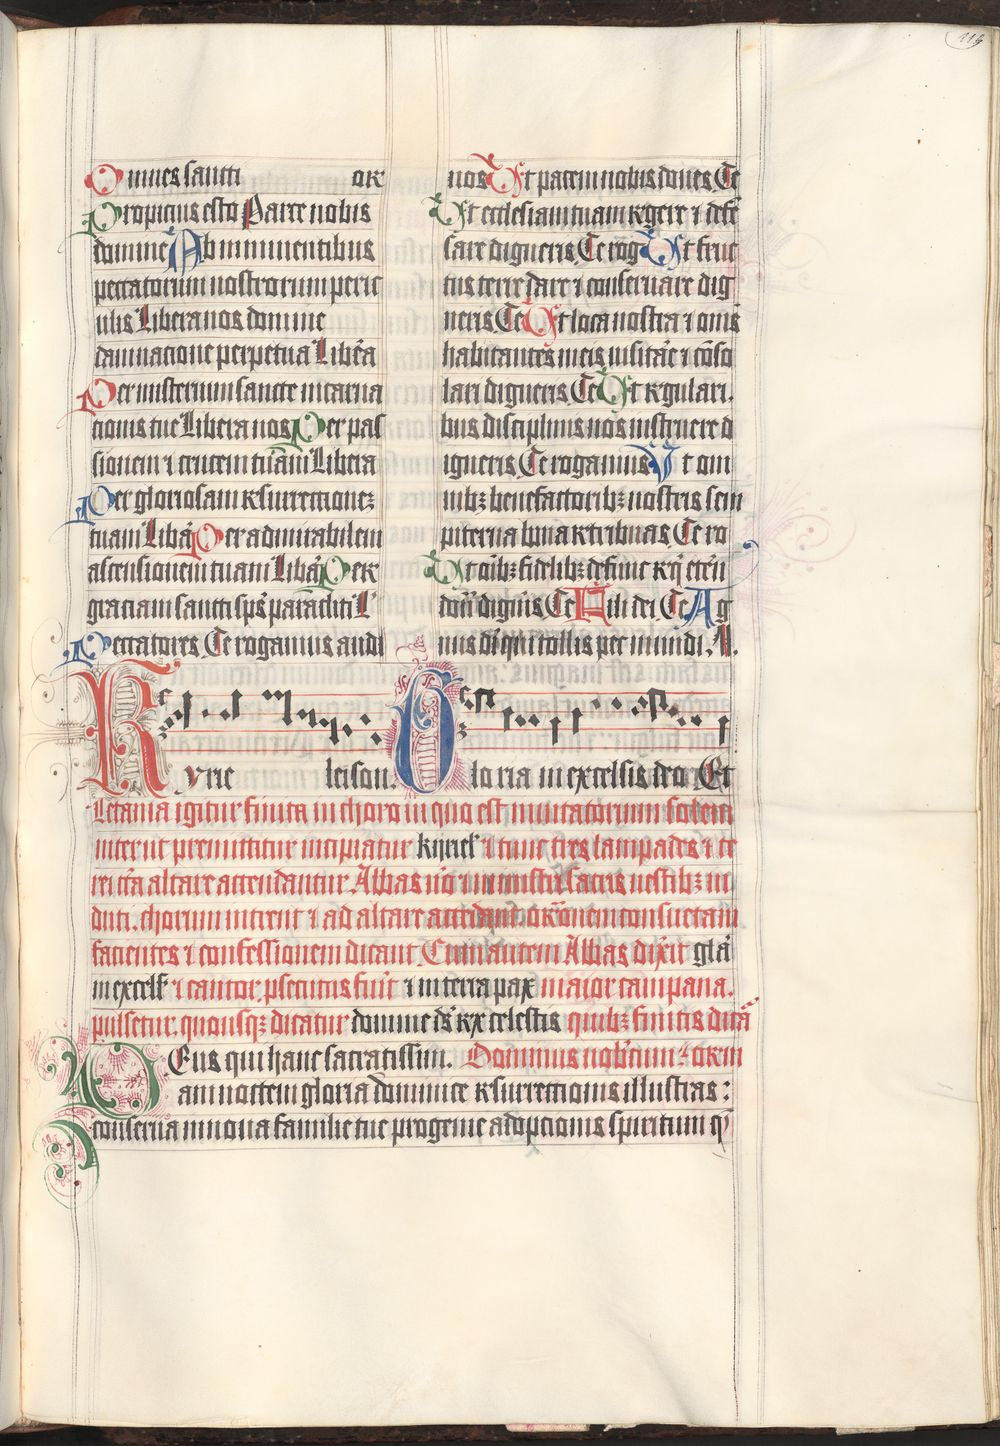 116
Omnes sancti or
Propicius esto Parce nobis
domine Ab imminentibus
peccatorum nostrorum peric
ulis Libera nos domine
dampnacione perpetua Libera
Per misterium sancte incarna
cionis tue Libera nos Per pas
sionem ⁊ crucem tuam Libera
Per gloriosam resurrectionem
tuam Liba Per admirabilem
ascensionem tuam Liba Per
graciam sancti sps paracliti L
Peccatores Te rogamus audi
nos Ut pacem nobis dones Te
Ut ecclesiam tuam regere ⁊ defe
sare digneris Te rog Ut fruc
tus terre dare ⁊ conservare dig
neris Te Ut loca nostra ⁊ oms
habitantes in eis visitare ⁊ coso
lari digneris Te Ut regulari
bus disciplinis nos instruere d
igneris Te rogamus Ut om
nibz benefactoribz nostris sem
piterna bona retribuas Te ro
Ut oibz fidelibz defunc
don digneris Te Fili dei Te Ag
nus di qui tollis pec mundi.
Kyrie leison. Gloria in excelsis deo. Et
Letania igitur finita in choro in quo est invitatorum solem
niter ut premittitur incipiatur kyriel ⁊ tunc tres lampades ⁊ ce
rei cra altare accendantur Abbas vo ⁊ ministri sacris vestibz in
duti. chorum intrent ⁊ ad altare accedant. oronem consuetam
facientes ⁊ confessionem dicant. Cum autem Abbas dixit gla
in excels ⁊ cantor psecutus fuit ⁊ in terra pax maior campana.
pulsetur. quousqz dicatur domine ds rex celestis quibz finitis dica
Deus qui hanc sacratissim. Dominus vobiscum
am noctem gloria dominice resurrectionis illustras :
conserva in nova familie tue progenie adopcionis spiritum q